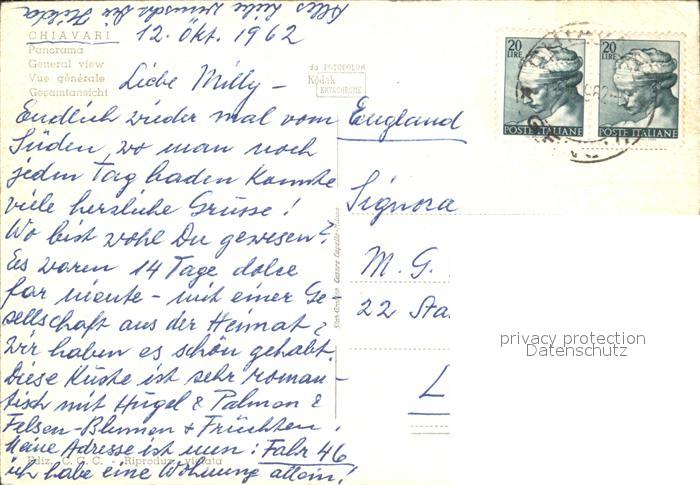 Alles Liebe wünscht Dir Hilda
CHIAVARI 12. Okt. 1962
Panorama
General view
Vue générale
Gesamtansicht
da FOTOCOLOR
Kodak
EKTACHROME
20 LIRE
POSTE ITALIANE
20 LIRE
POSTE ITALIANE
Liebe Milly -
Endlich wieder mal vom
Süden, wo man noch
jeden Tag baden konnte
viele herzliche Grüsse!
Wo bist wohl Du gewesen?
Es waren 14 Tage dolce
far niente - mit einer Ge-
sellschaft aus der Heimat &
Wir haben es schön gehabt.
Diese Küste ist sehr roman-
tisch mit Hügel & Palmen &
Felsen-Blumen + Früchten!
Meine Adresse ist nun: Fahr 46
Ediz. C. G. C. - Riproduz. vietata
ich habe eine Wohnung allein!
England
Signora
M. G.
22 Sta
L
privacy protection
Datenschutz